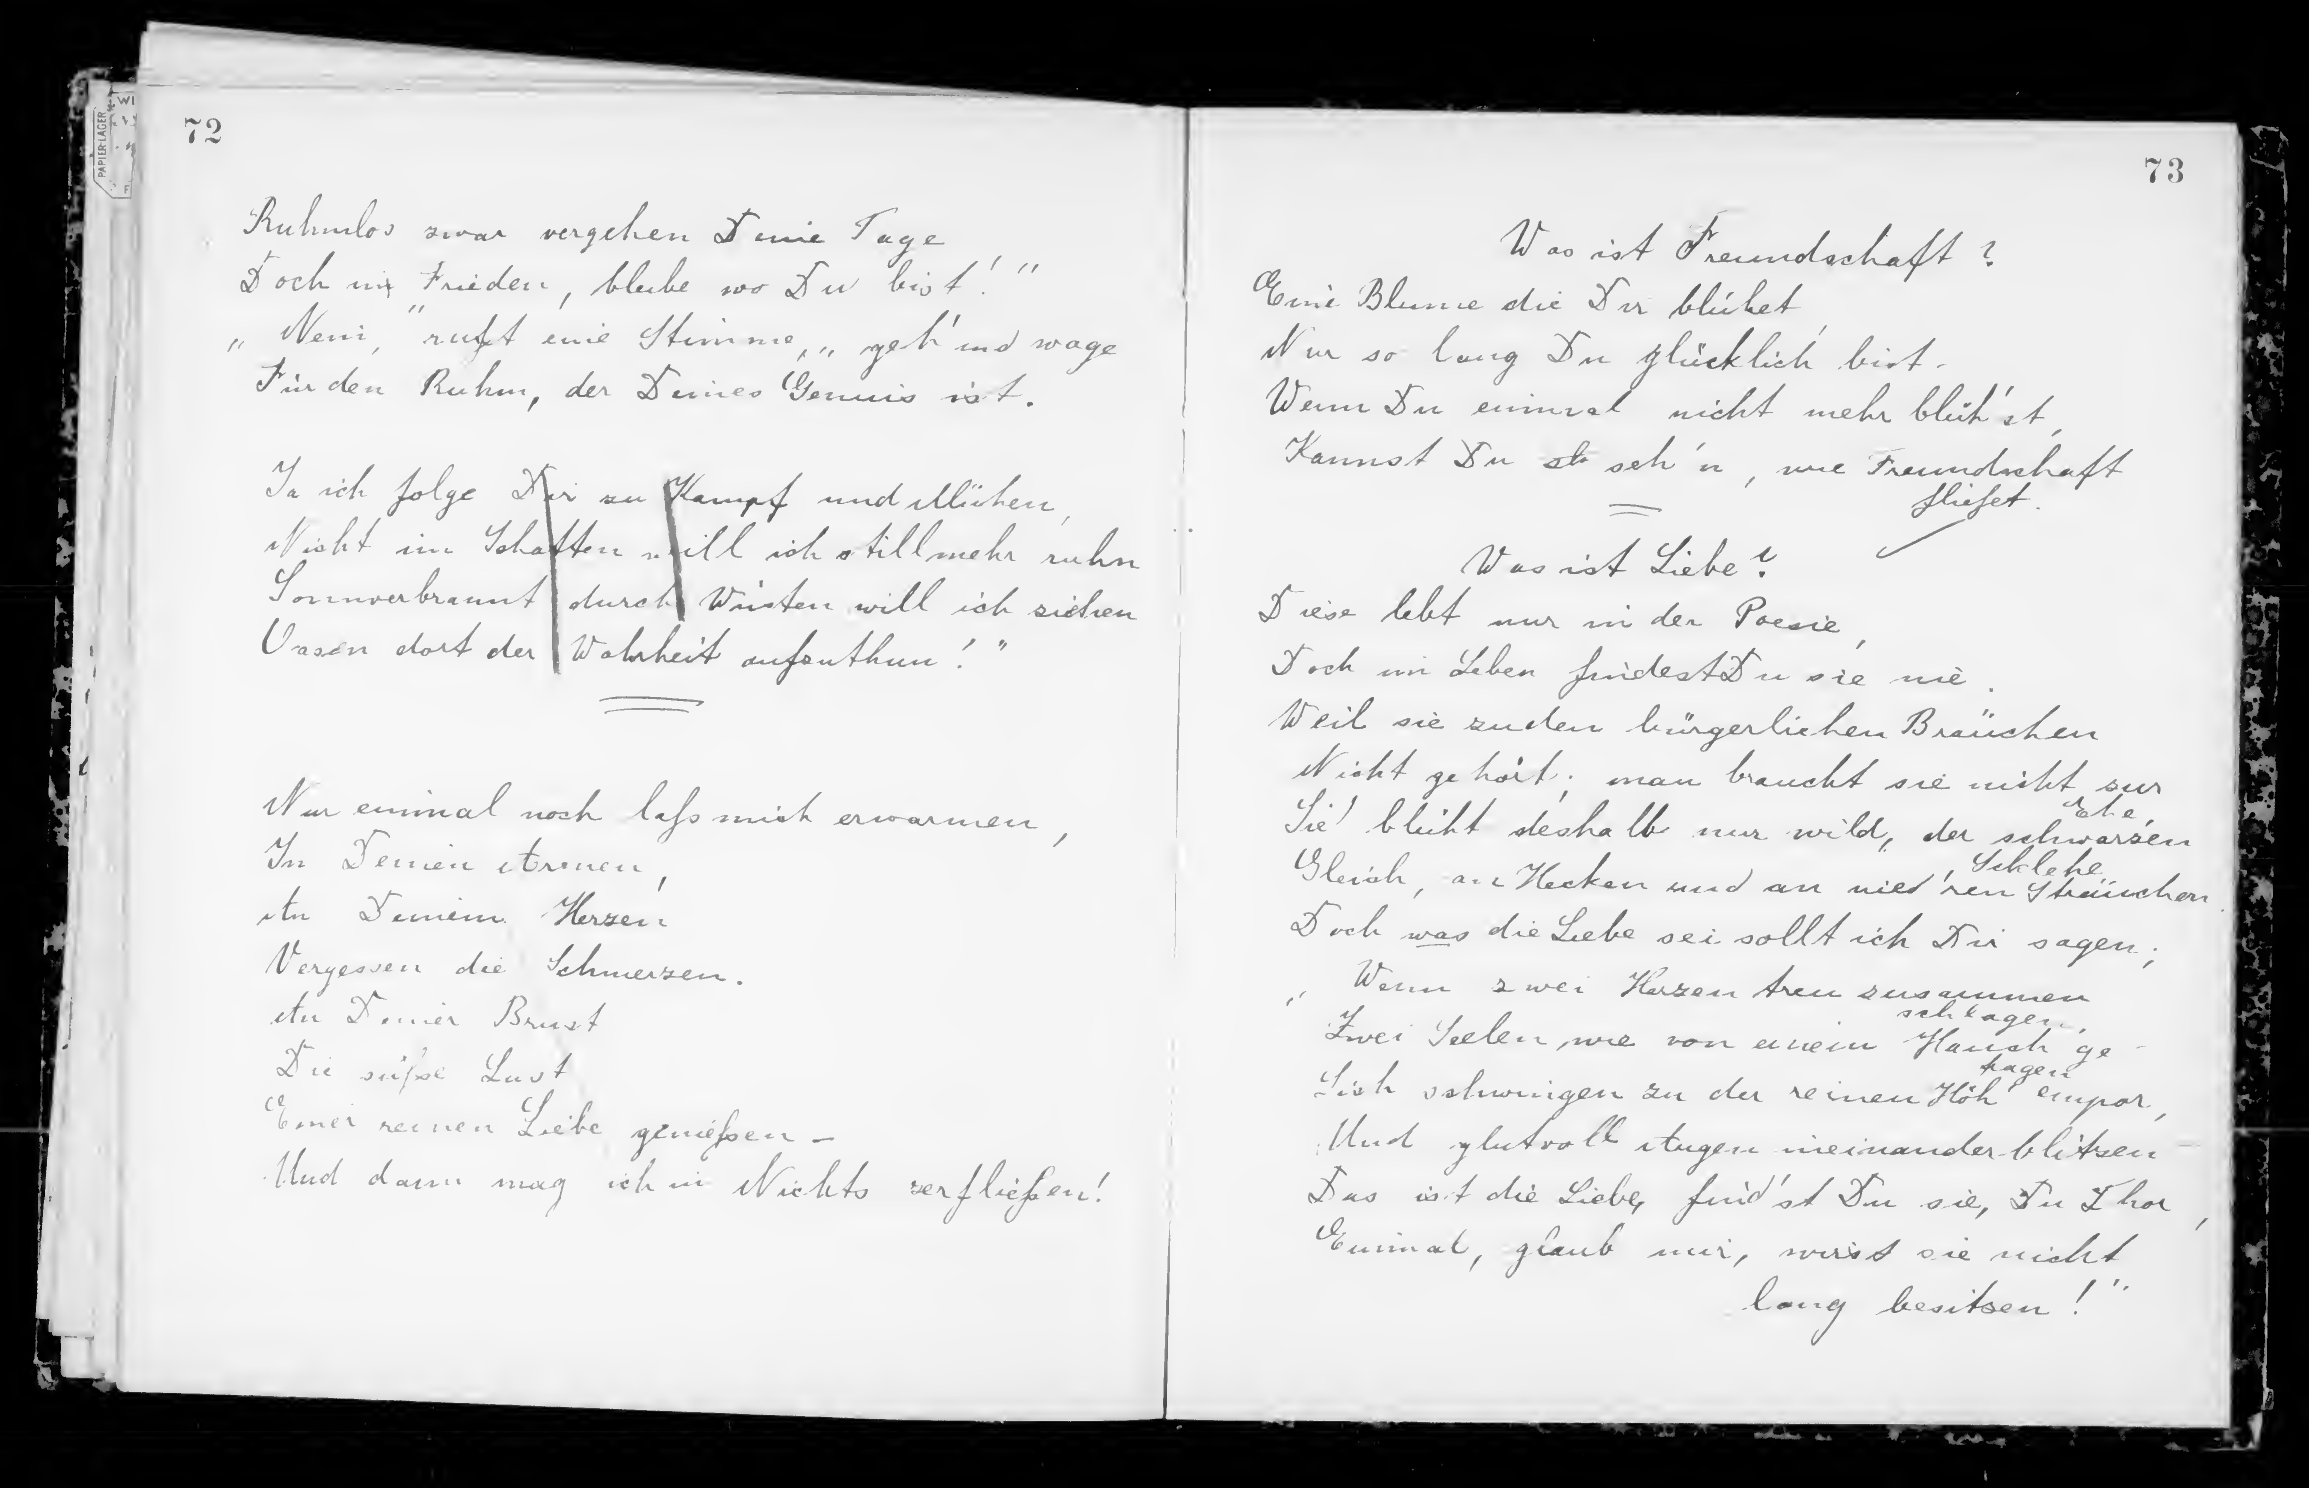 WI
PAPIER-LAGER
72
Ruhmlos zwar vergehen Deine Tage
Doch in Frieden, bleibe wo Du bist!"
„Nein," ruft eine Stimme, „geh' und wage
Für den Ruhm, der Deines Genuis ist.
Ja ich folge Dir zu Kampf und Mühen,
Nicht im Schatten will ich still mehr ruhn
Sonnverbrannt durch Wüsten will ich ziehen
Oasen dort der Wahrheit aufzuthun!"
Nur einmal noch laß mich erwarmen,
In Deinen Armen,
An Deinem Herzen
Vergessen die Schmerzen.
An Deiner Brust
Die süße Lust
Einer reinen Liebe genießen –
Und dann mag ich in Nichts zerfließen!
73
Was ist Freundschaft?
Eine Blume die Dir blühet,
Nur so lang Du glücklich bist.
Wenn Du einmal nicht mehr blüh'st,
Kannst Du seh'n, wie Freundschaft
fließet.
Was ist Liebe?
Diese lebt nur in der Poesie,
Doch im Leben findest Du sie nie.
Weil sie zu den bürgerlichen Bräuchen
Nicht gehört; man braucht sie nicht zur
Ehe,
Sie blüht deshalb nur wild, der schwarzen
Schlehe
Gleich, an Hecken und an nied'ren Sträuchen.
Doch was die Liebe sei sollt ich Dir sagen;
„Wenn zwei Herzen treu zusammen
schlagen,
Zwei Seelen, wie von einem Hauch ge-
tragen
Sich schwingen zu der reinen Höh' empor,
Und glutvoll Augen ineinander blitzen –
Das ist die Liebe, find'st Du sie, Du Thor,
Einmal, glaub mir, wirst sie nicht
lang besitzen!"